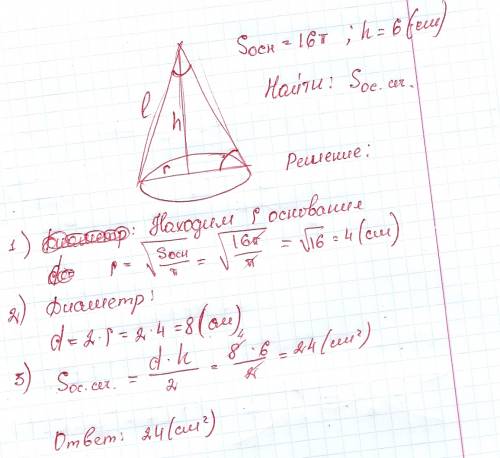 Sосн = 16π ; h = 6 (см)
Найти: Sос. сч.
l
h
r
Решение:
1) Диаметр: Находим r основания
d r = √Sосн/π = √16π/π = √16 = 4 (см)
2) Диаметр:
d = 2·r = 2·4 = 8 (см)
3) Sос. сч. = d·h/2 = 8·6/2 = 24 (см²)
4
Ответ: 24 (см²)